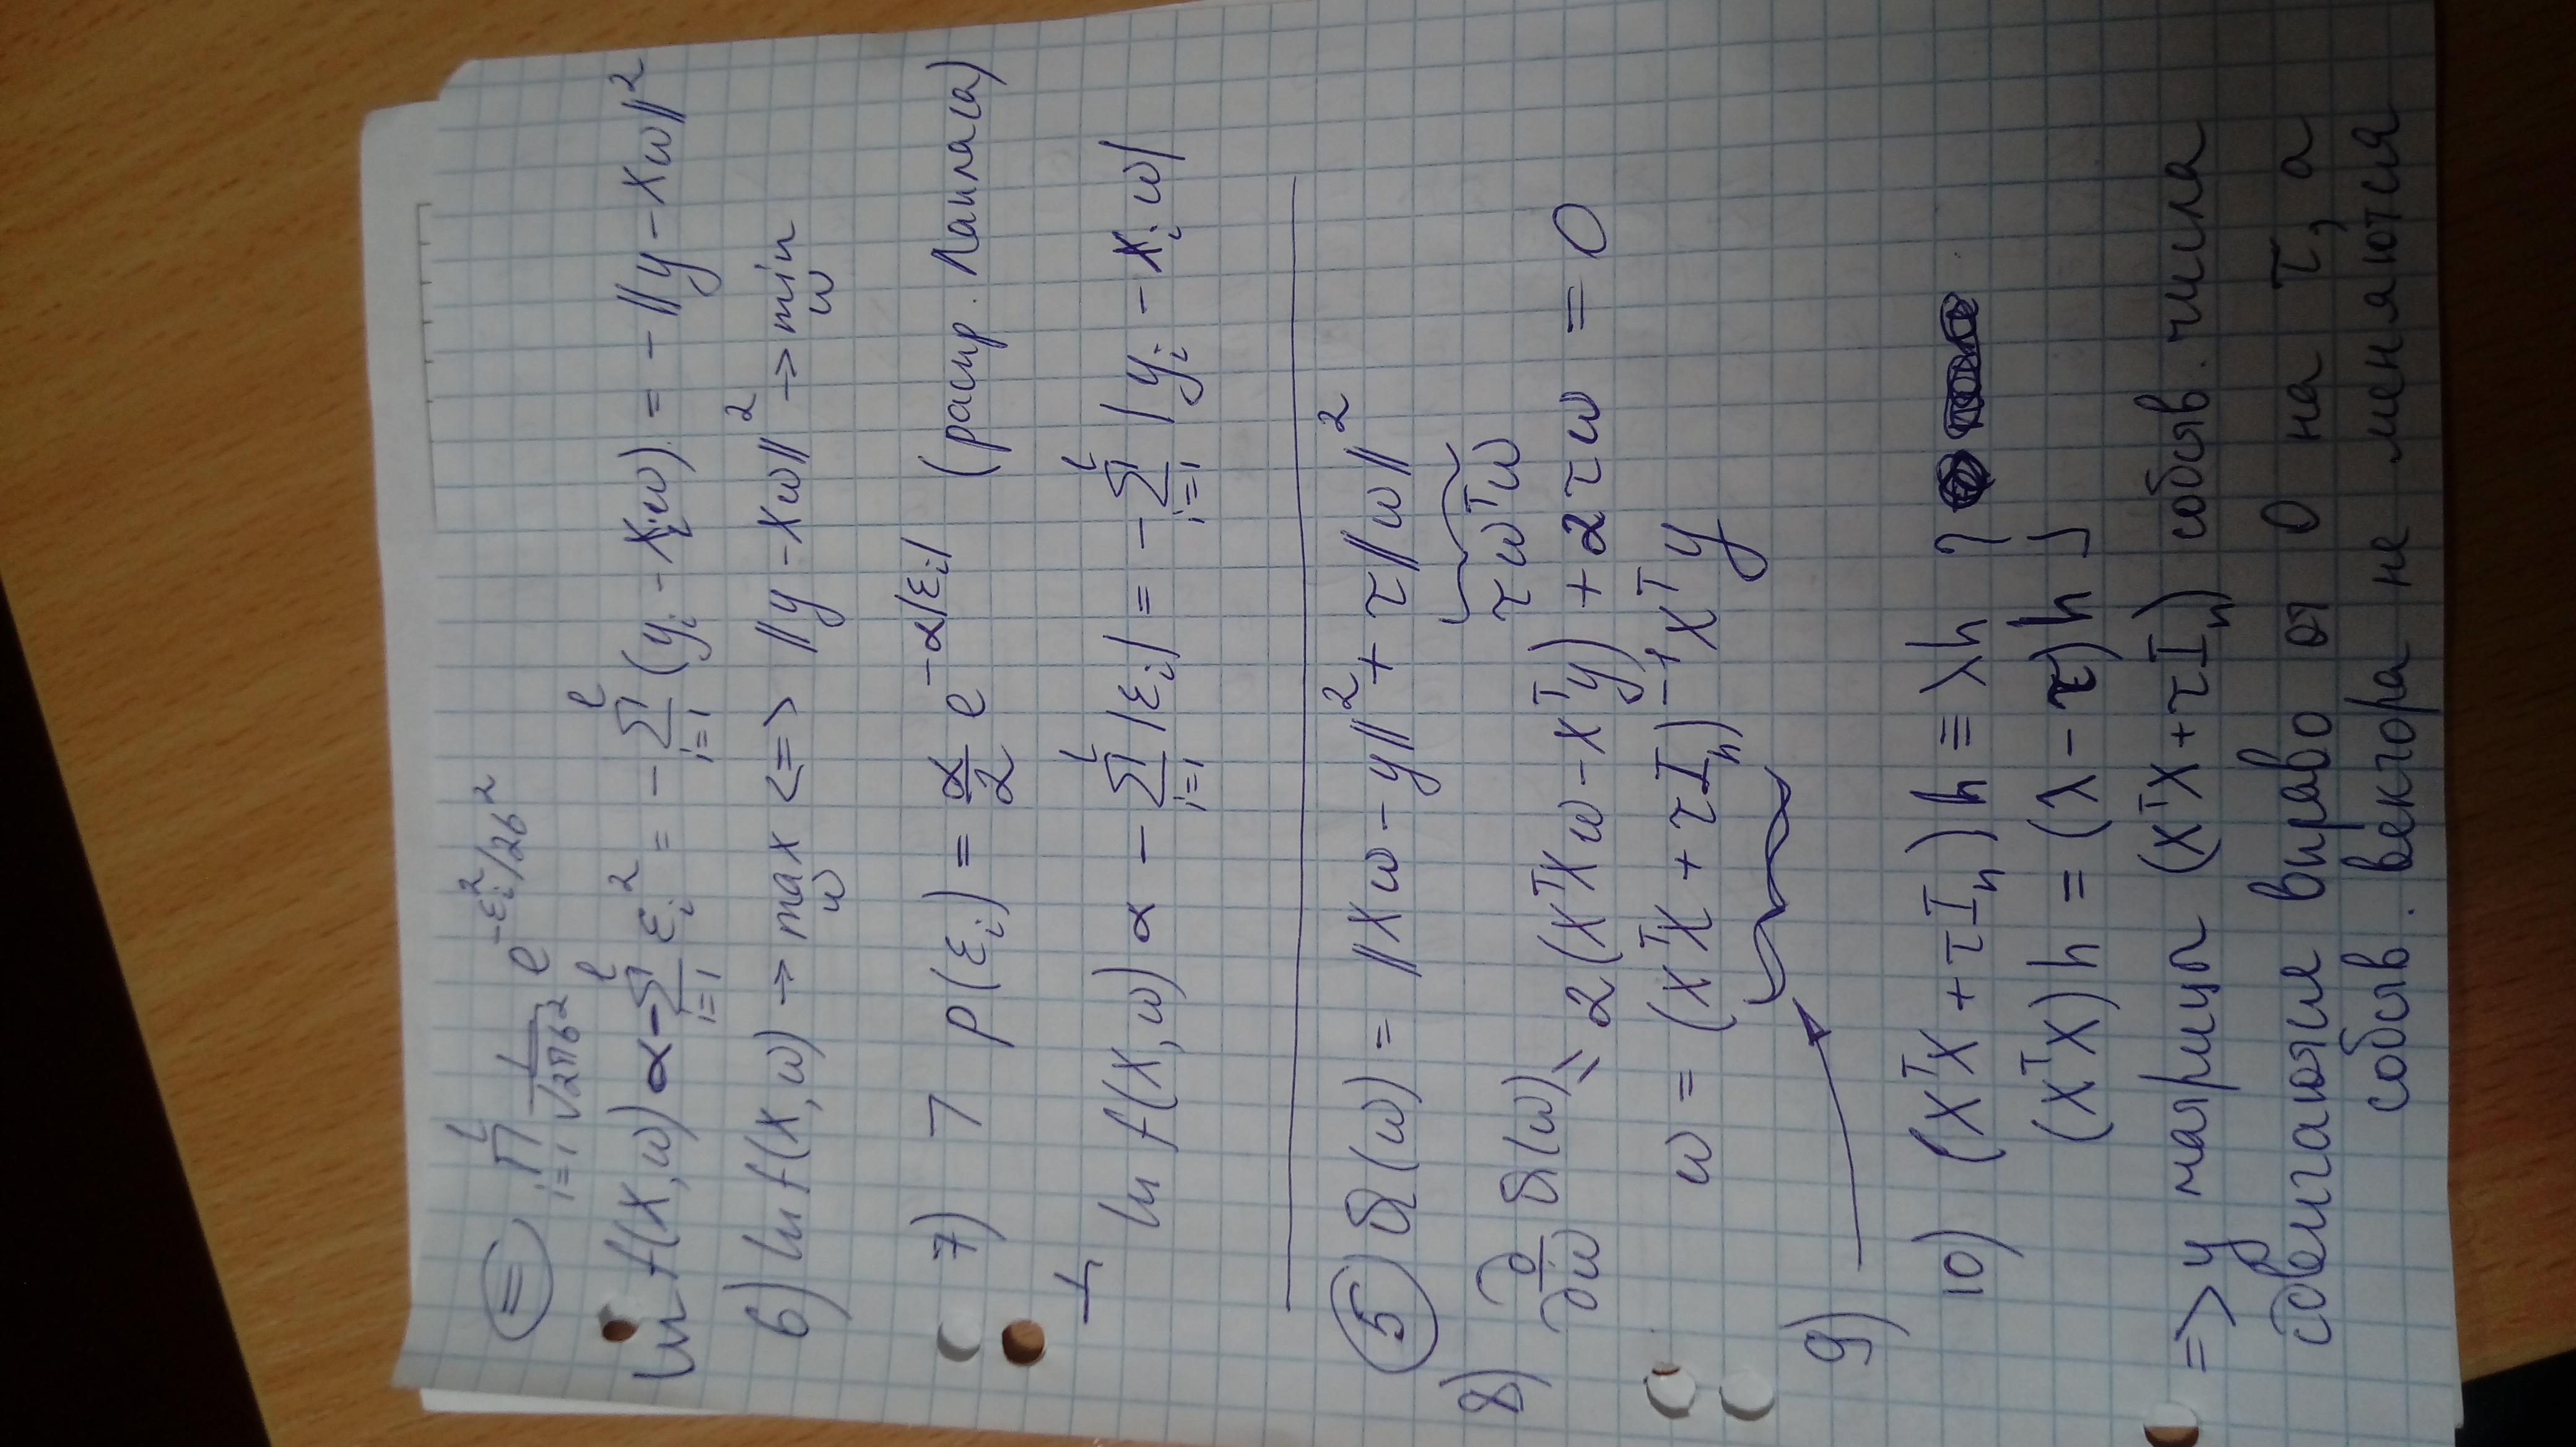 = ∏_{i=1}^{l} 1/√(2πσ²) e^{-ε_i²/2σ²}
ln f(X, ω) ∝ -∑_{i=1}^{l} ε_i² = -∑_{i=1}^{l} (y_i - X_i ω) = -||y - Xω||²
6) ln f(X, ω) → max_ω <=> ||y - Xω||² → min_ω
7) ] p(ε_i) = α/2 e^{-α|ε_i|} (распр. Лапласа)
ln f(X, ω) ∝ -∑_{i=1}^{l} |ε_i| = -∑_{i=1}^{l} |y_i - X_i ω|
5 Q(ω) = ||Xω - y||² + τ||ω||²
τω^Tω
8) ∂/∂ω Q(ω) = 2(X^TXω - X^Ty) + 2τω = 0
ω = (X^TX + τI_n)^{-1} X^T y
9)
10) (X^TX + τI_n)h ≡ λh
(X^TX)h = (λ - τ)h
=> у матрицы (X^TX + τI_n) собств. числа
сдвигаются вправо от 0 на τ, а
собств. вектора не меняются